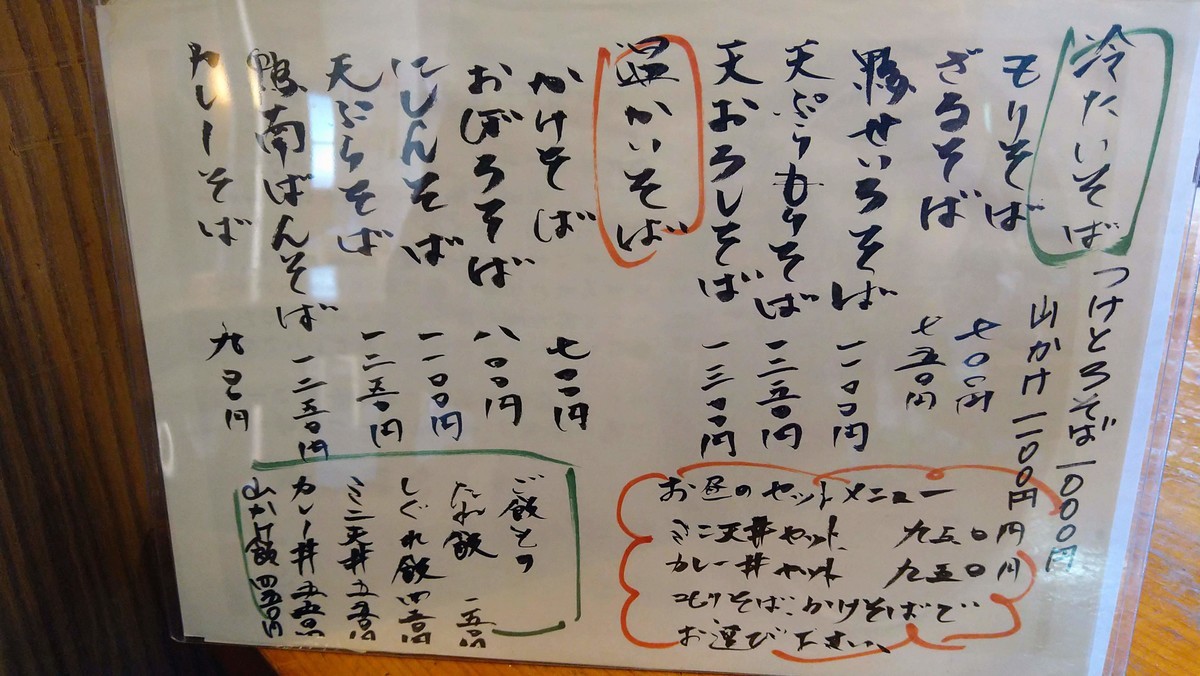 冷たいそば
つけとろそば 一〇〇〇円
山かけ 一一〇〇円
もりそば 七〇〇円
ざるそば 七五〇円
鴨せいろそば
天ぷらもりそば 一三五〇円
天おろしそば 一三〇〇円
温かいそば
かけそば 七〇〇円
おぼろそば 八〇〇円
にしんそば 一一〇〇円
天ぷらそば 一二五〇円
鴨南ばんそば 一二五〇円
カレーそば 九〇〇円
お昼のセットメニュー
ミニ天丼セット 九五〇円
カレー丼セット 九五〇円
もりそば、かけそばで
お選び下さい、
ご飯もの
たれ飯 一五〇円
しぐれ飯
ミニ天丼 五五〇円
カレー丼 五五〇円
山かけ飯 四五〇円